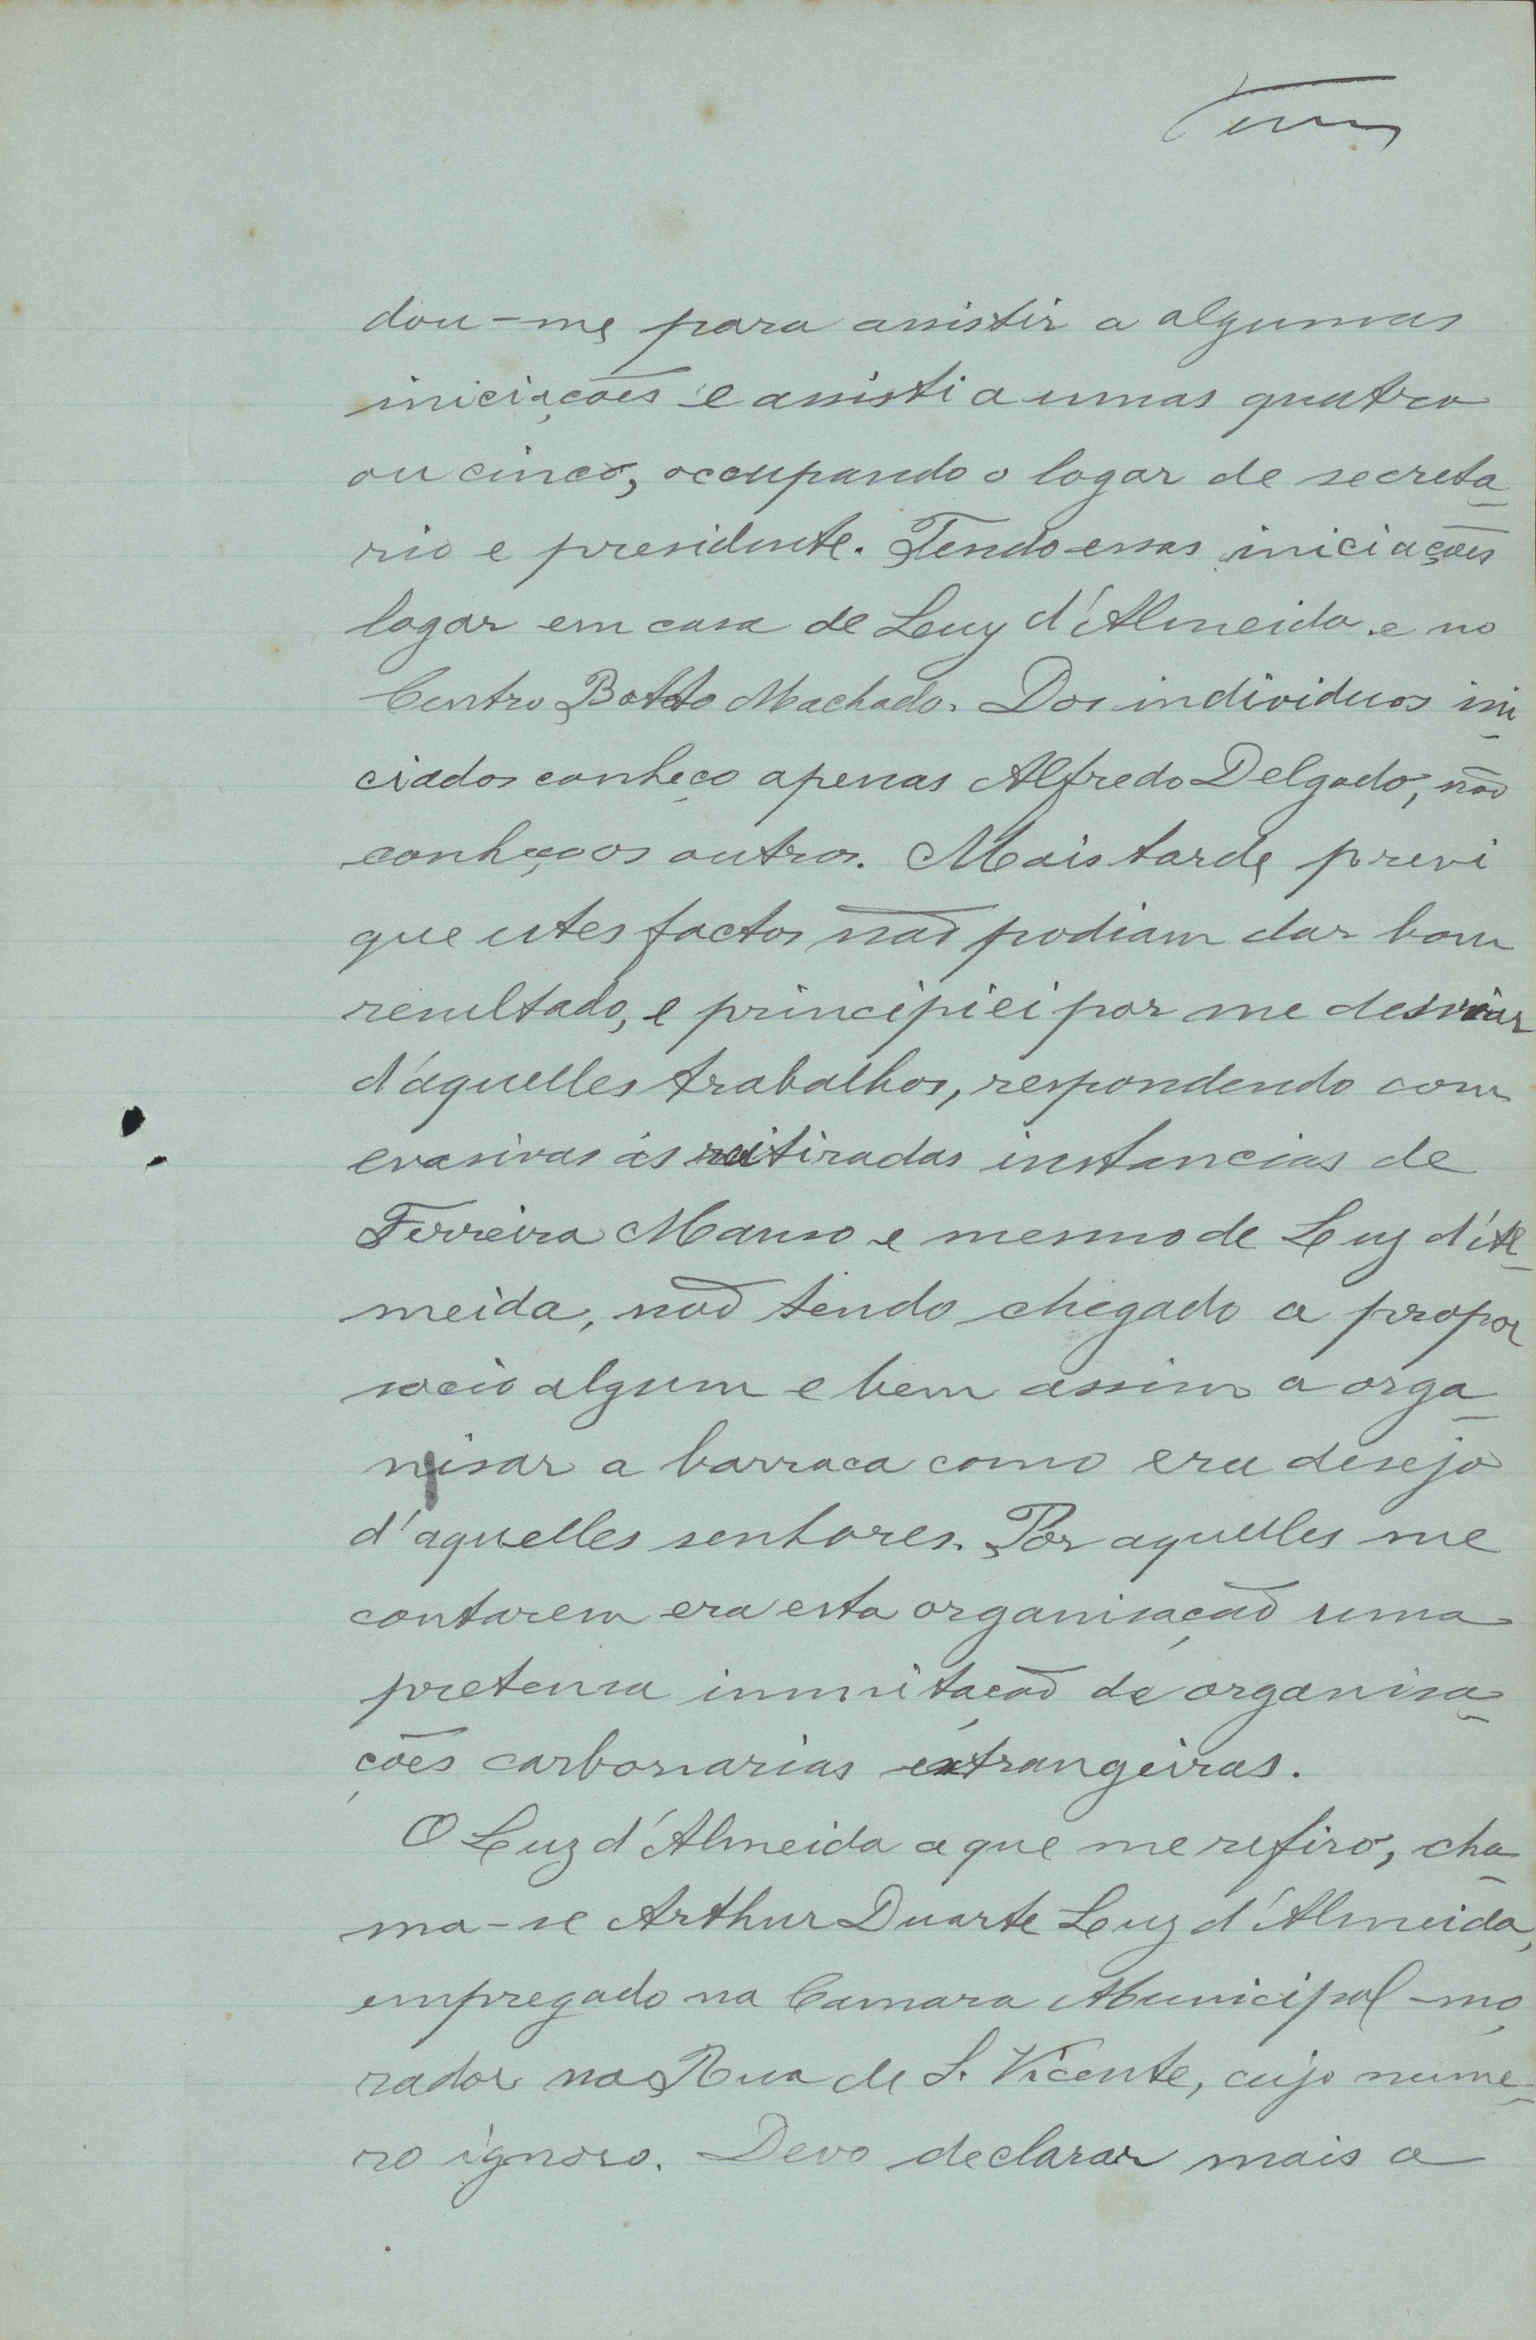 dou-me para assistir a algumas
iniciações e assisti a umas quatro
ou cinco, occupando o logar de secreta-
rio e presidente. Tendo essas iniciações
logar em casa de Luz d'Almeida e no
Centro Botto Machado. Dos individuos ini-
ciados conheço apenas Alfredo Delgado, não
conheço os outros. Mais tarde previ
que estes factos não podiam dar bom
resultado, e principiei por me desviar
d'aquelles trabalhos, respondendo com
evasivas ás reitiradas instancias de
Ferreira Manso e mesmo de Luz d'Al-
meida, não tendo chegado a propor
socio algum e bem assim a orga-
nisar a barraca como era desejo
d'aquelles senhores. Por aquelles me
contarem era esta organisação uma
pretensa immitação de organisa-
ções carbonarias extrangeiras.
O Luz d'Almeida a que me refiro, cha-
ma-se Arthur Duarte Luz d'Almeida,
empregado na Camara Municipal - mo-
rador na Rua de S. Vicente, cujo nume-
ro ignoro. Devo declarar mais a